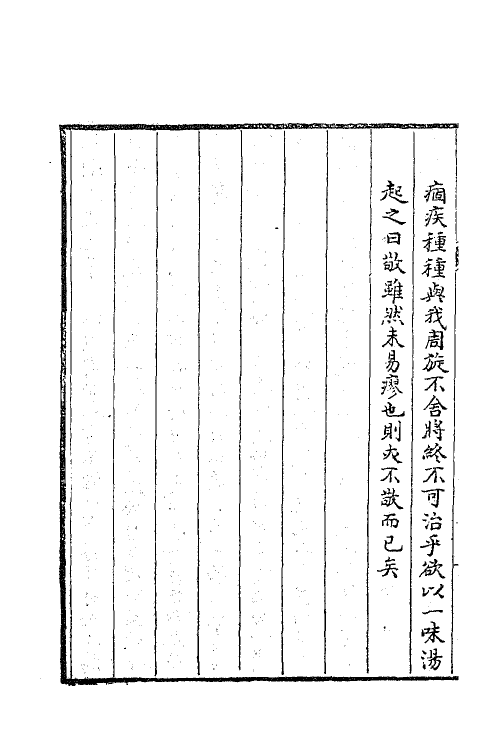 痼疾種種與我周旋不舍將終不可治乎欲以一味湯
起之曰敬雖然未易瘳也則亦不敬而已矣